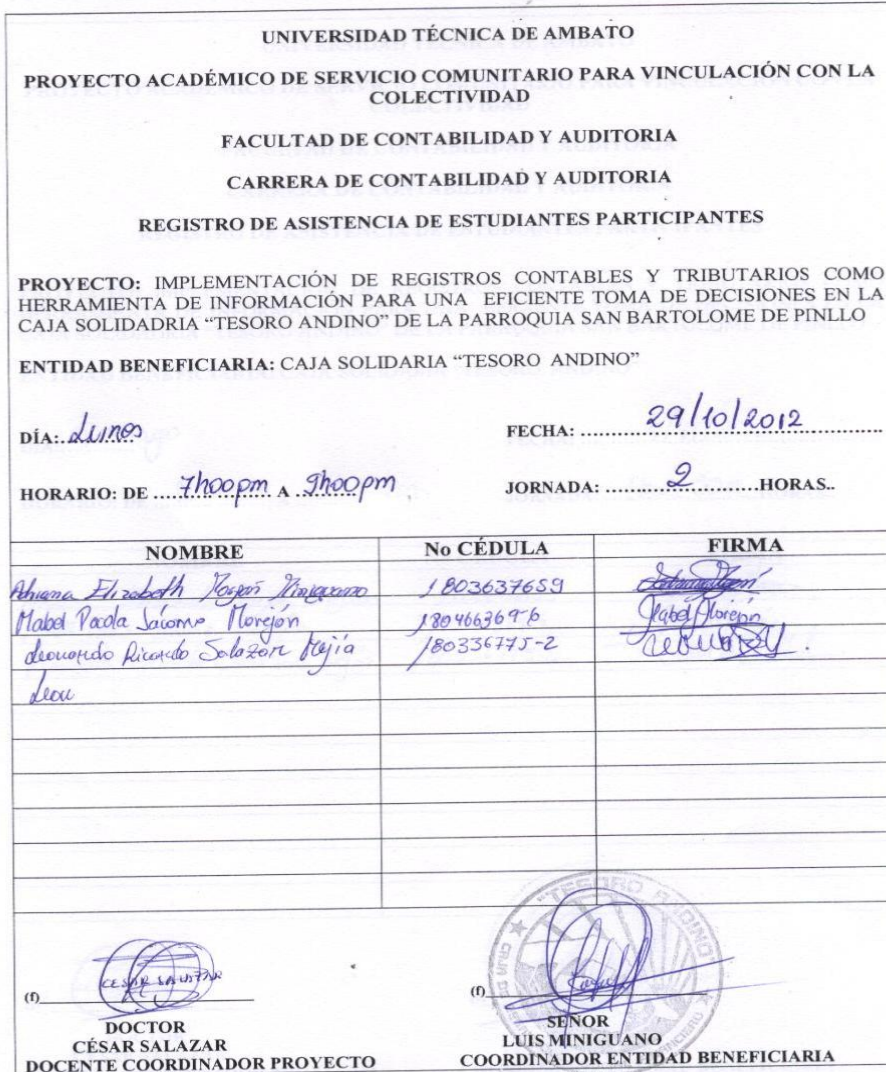 UNIVERSIDAD TÉCNICA DE AMBATO
PROYECTO ACADÉMICO DE SERVICIO COMUNITARIO PARA VINCULACIÓN CON LA
COLECTIVIDAD
FACULTAD DE CONTABILIDAD Y AUDITORIA
CARRERA DE CONTABILIDAD Y AUDITORIA
REGISTRO DE ASISTENCIA DE ESTUDIANTES PARTICIPANTES
PROYECTO: IMPLEMENTACIÓN DE REGISTROS CONTABLES Y TRIBUTARIOS COMO
HERRAMIENTA DE INFORMACIÓN PARA UNA EFICIENTE TOMA DE DECISIONES EN LA
CAJA SOLIDADRIA “TESORO ANDINO” DE LA PARROQUIA SAN BARTOLOME DE PINLLO
ENTIDAD BENEFICIARIA: CAJA SOLIDARIA “TESORO ANDINO”
DÍA: Lunes FECHA: 29/10/2012
HORARIO: DE 7h00pm A 9h00pm JORNADA: 2 HORAS..
NOMBRE No CÉDULA FIRMA
Adriana Elizabeth 1803637659
Mabel Paola Jácome Morejón 180466369-6 Mabel Morejón
Leonardo Ricardo Salazar Mejía 180336775-2
Leon
"TESORO ANDINO"
CESAR SALAZAR
(f) (f)
DOCTOR SEÑOR
CÉSAR SALAZAR LUIS MINIGUANO
DOCENTE COORDINADOR PROYECTO COORDINADOR ENTIDAD BENEFICIARIA